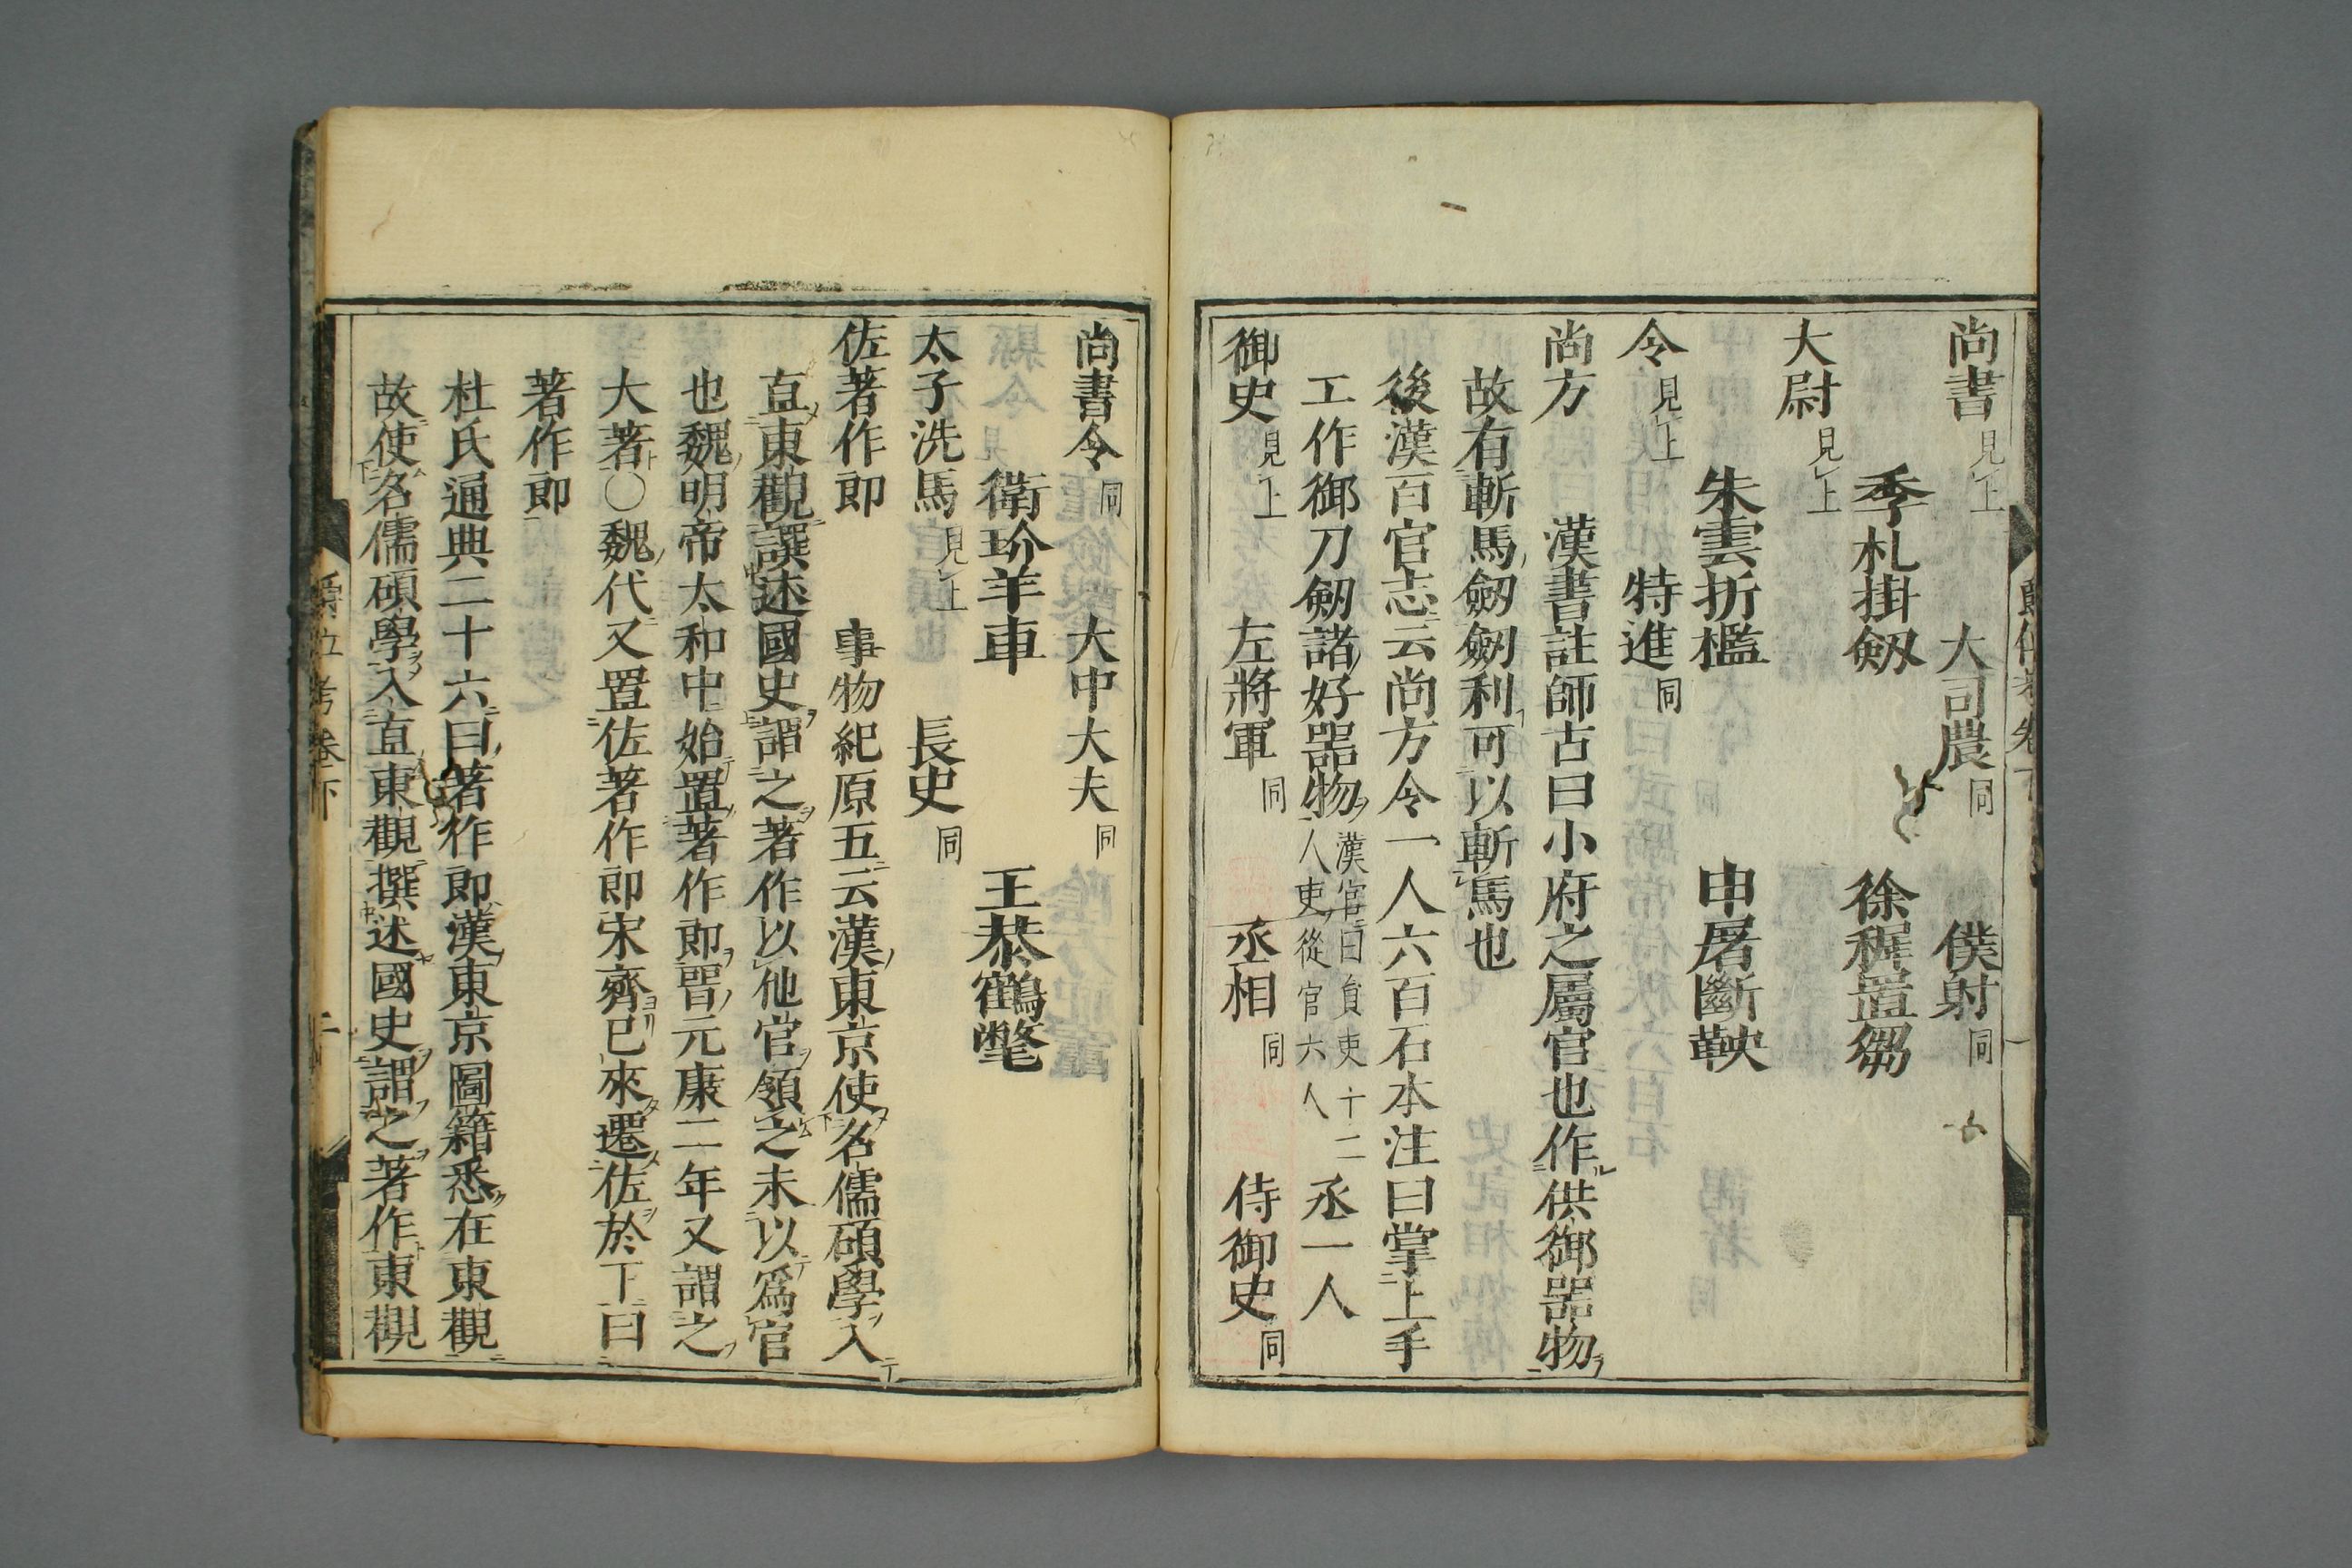 尚書見上 大司農同 僕射同
季札掛劔 徐穉置芻
大尉見上
朱雲折檻 申屠斷鞅
令見上 特進同
尚方 漢書註師古曰小府之屬官也作供御器物
故有斬馬劔劔利可以斬馬也
後漢百官志云尚方令一人六百石本注曰掌上手
工作御刀劔諸好器物漢官曰員吏十二人吏從官六人丞一人
御史見上 左將軍同 丞相同 侍御史同
尚書令同 大中大夫同
衛玠羊車 王恭鶴氅
太子洗馬見上 長史同
佐著作郎 事物紀原五云漢東京使名儒碩學入
直東觀譔述國史謂之著作以他官領之未以爲官
也魏明帝太和中始置著作郎晉元康二年又謂之
大著○魏代又置佐著作郎宋齊已來遷佐於下曰
著作郎
杜氏通典二十六曰著作郎漢東京圖籍悉在東觀
故使名儒碩學入直東觀撰述國史謂之著作東觀
爵位考卷下